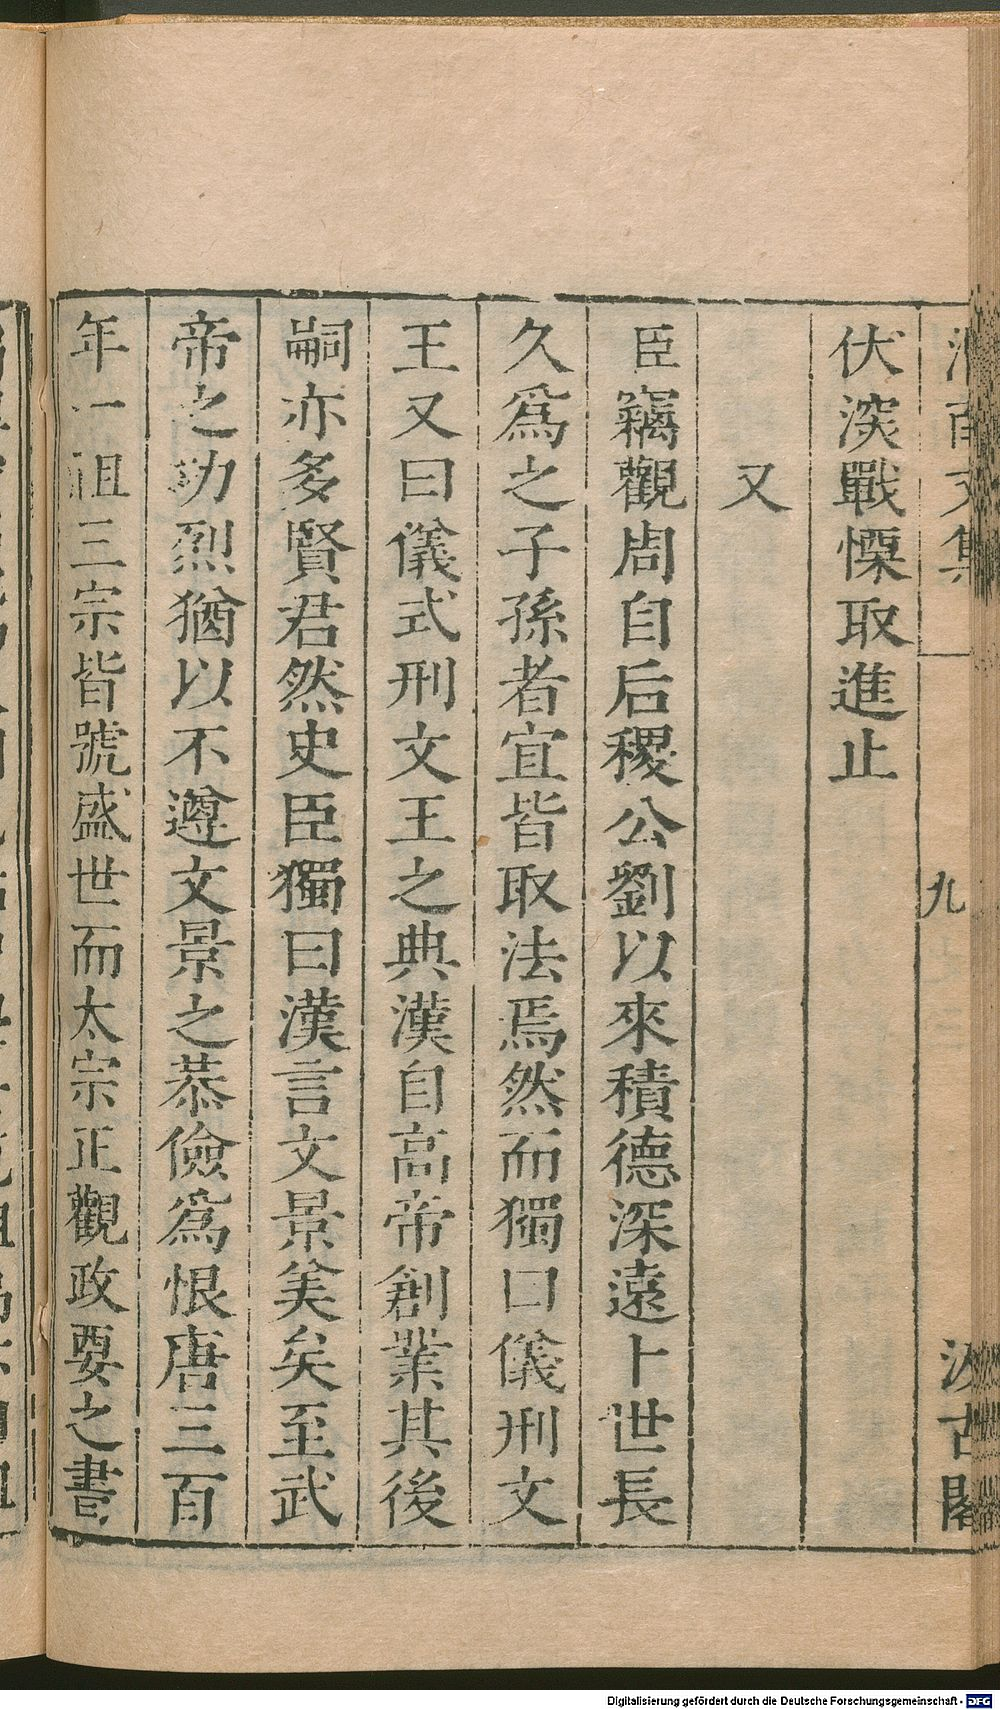 文集
九
汲古閣
伏深戰慄取進止
又
臣竊觀周自后稷公劉以來積德深遠卜世長
久爲之子孫者宜皆取法焉然而獨曰儀刑文
王又曰儀式刑文王之典漢自高帝創業其後
嗣亦多賢君然史臣獨曰漢言文景美矣至武
帝之功烈猶以不遵文景之恭儉爲恨唐三百
年一祖三宗皆號盛世而太宗正觀政要之書
Digitalisierung gefördert durch die Deutsche Forschungsgemeinschaft - DFG